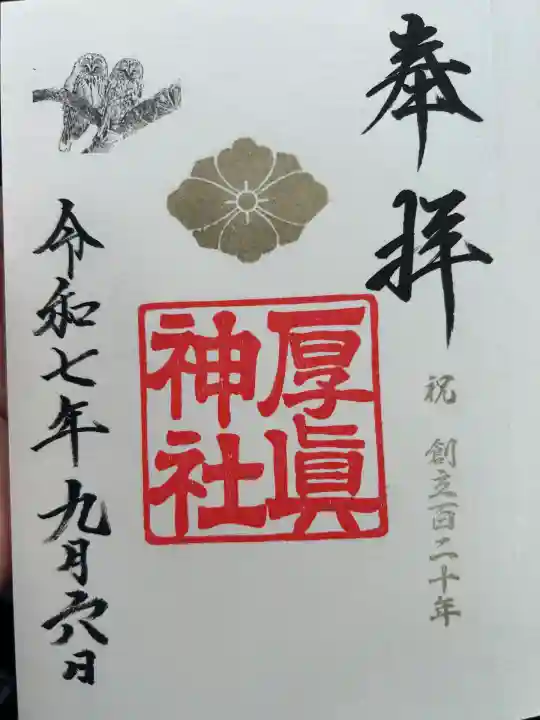 奉拝
祝 創立百二十年
厚眞
神社
令和七年九月六日